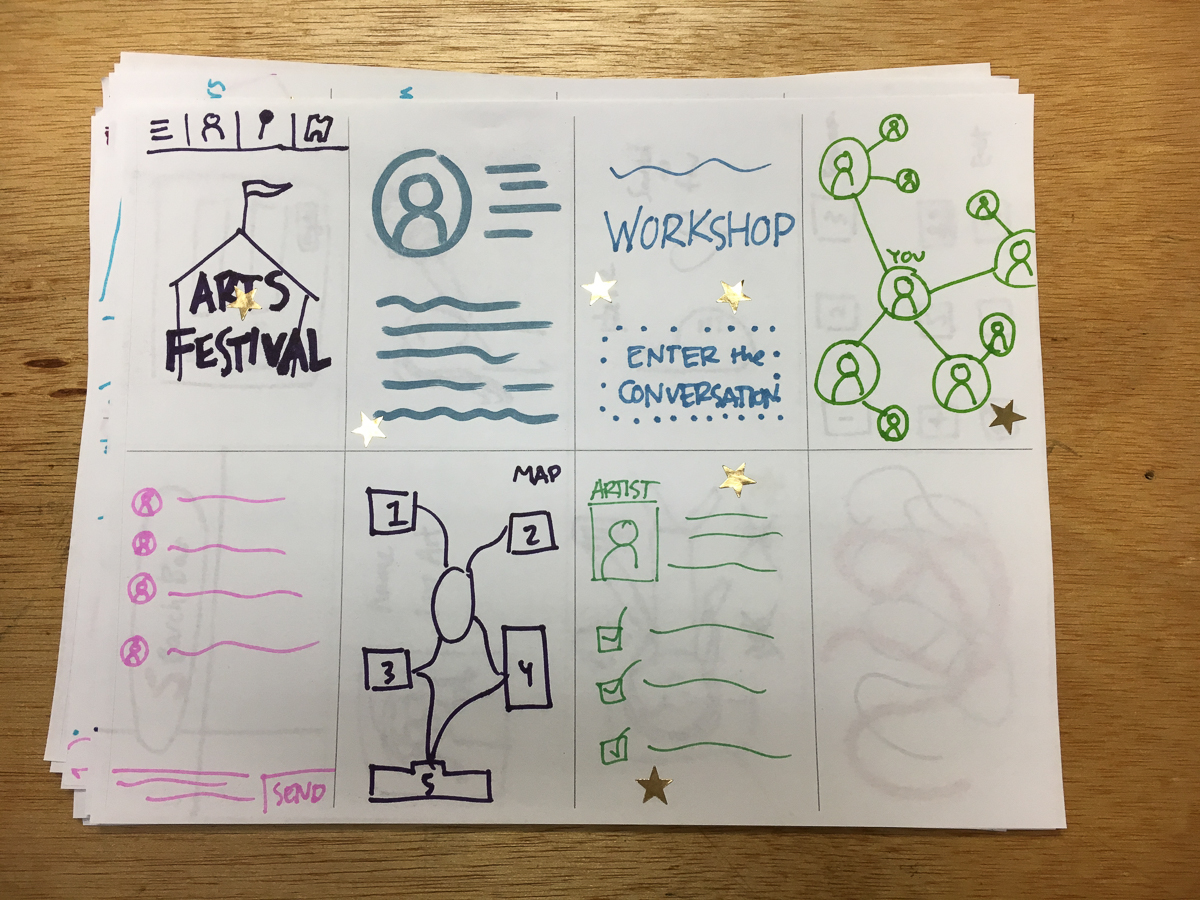 ARTS
FESTIVAL
WORKSHOP
ENTER the
CONVERSATION
YOU
SEND
MAP
1
2
3
4
5
ARTIST